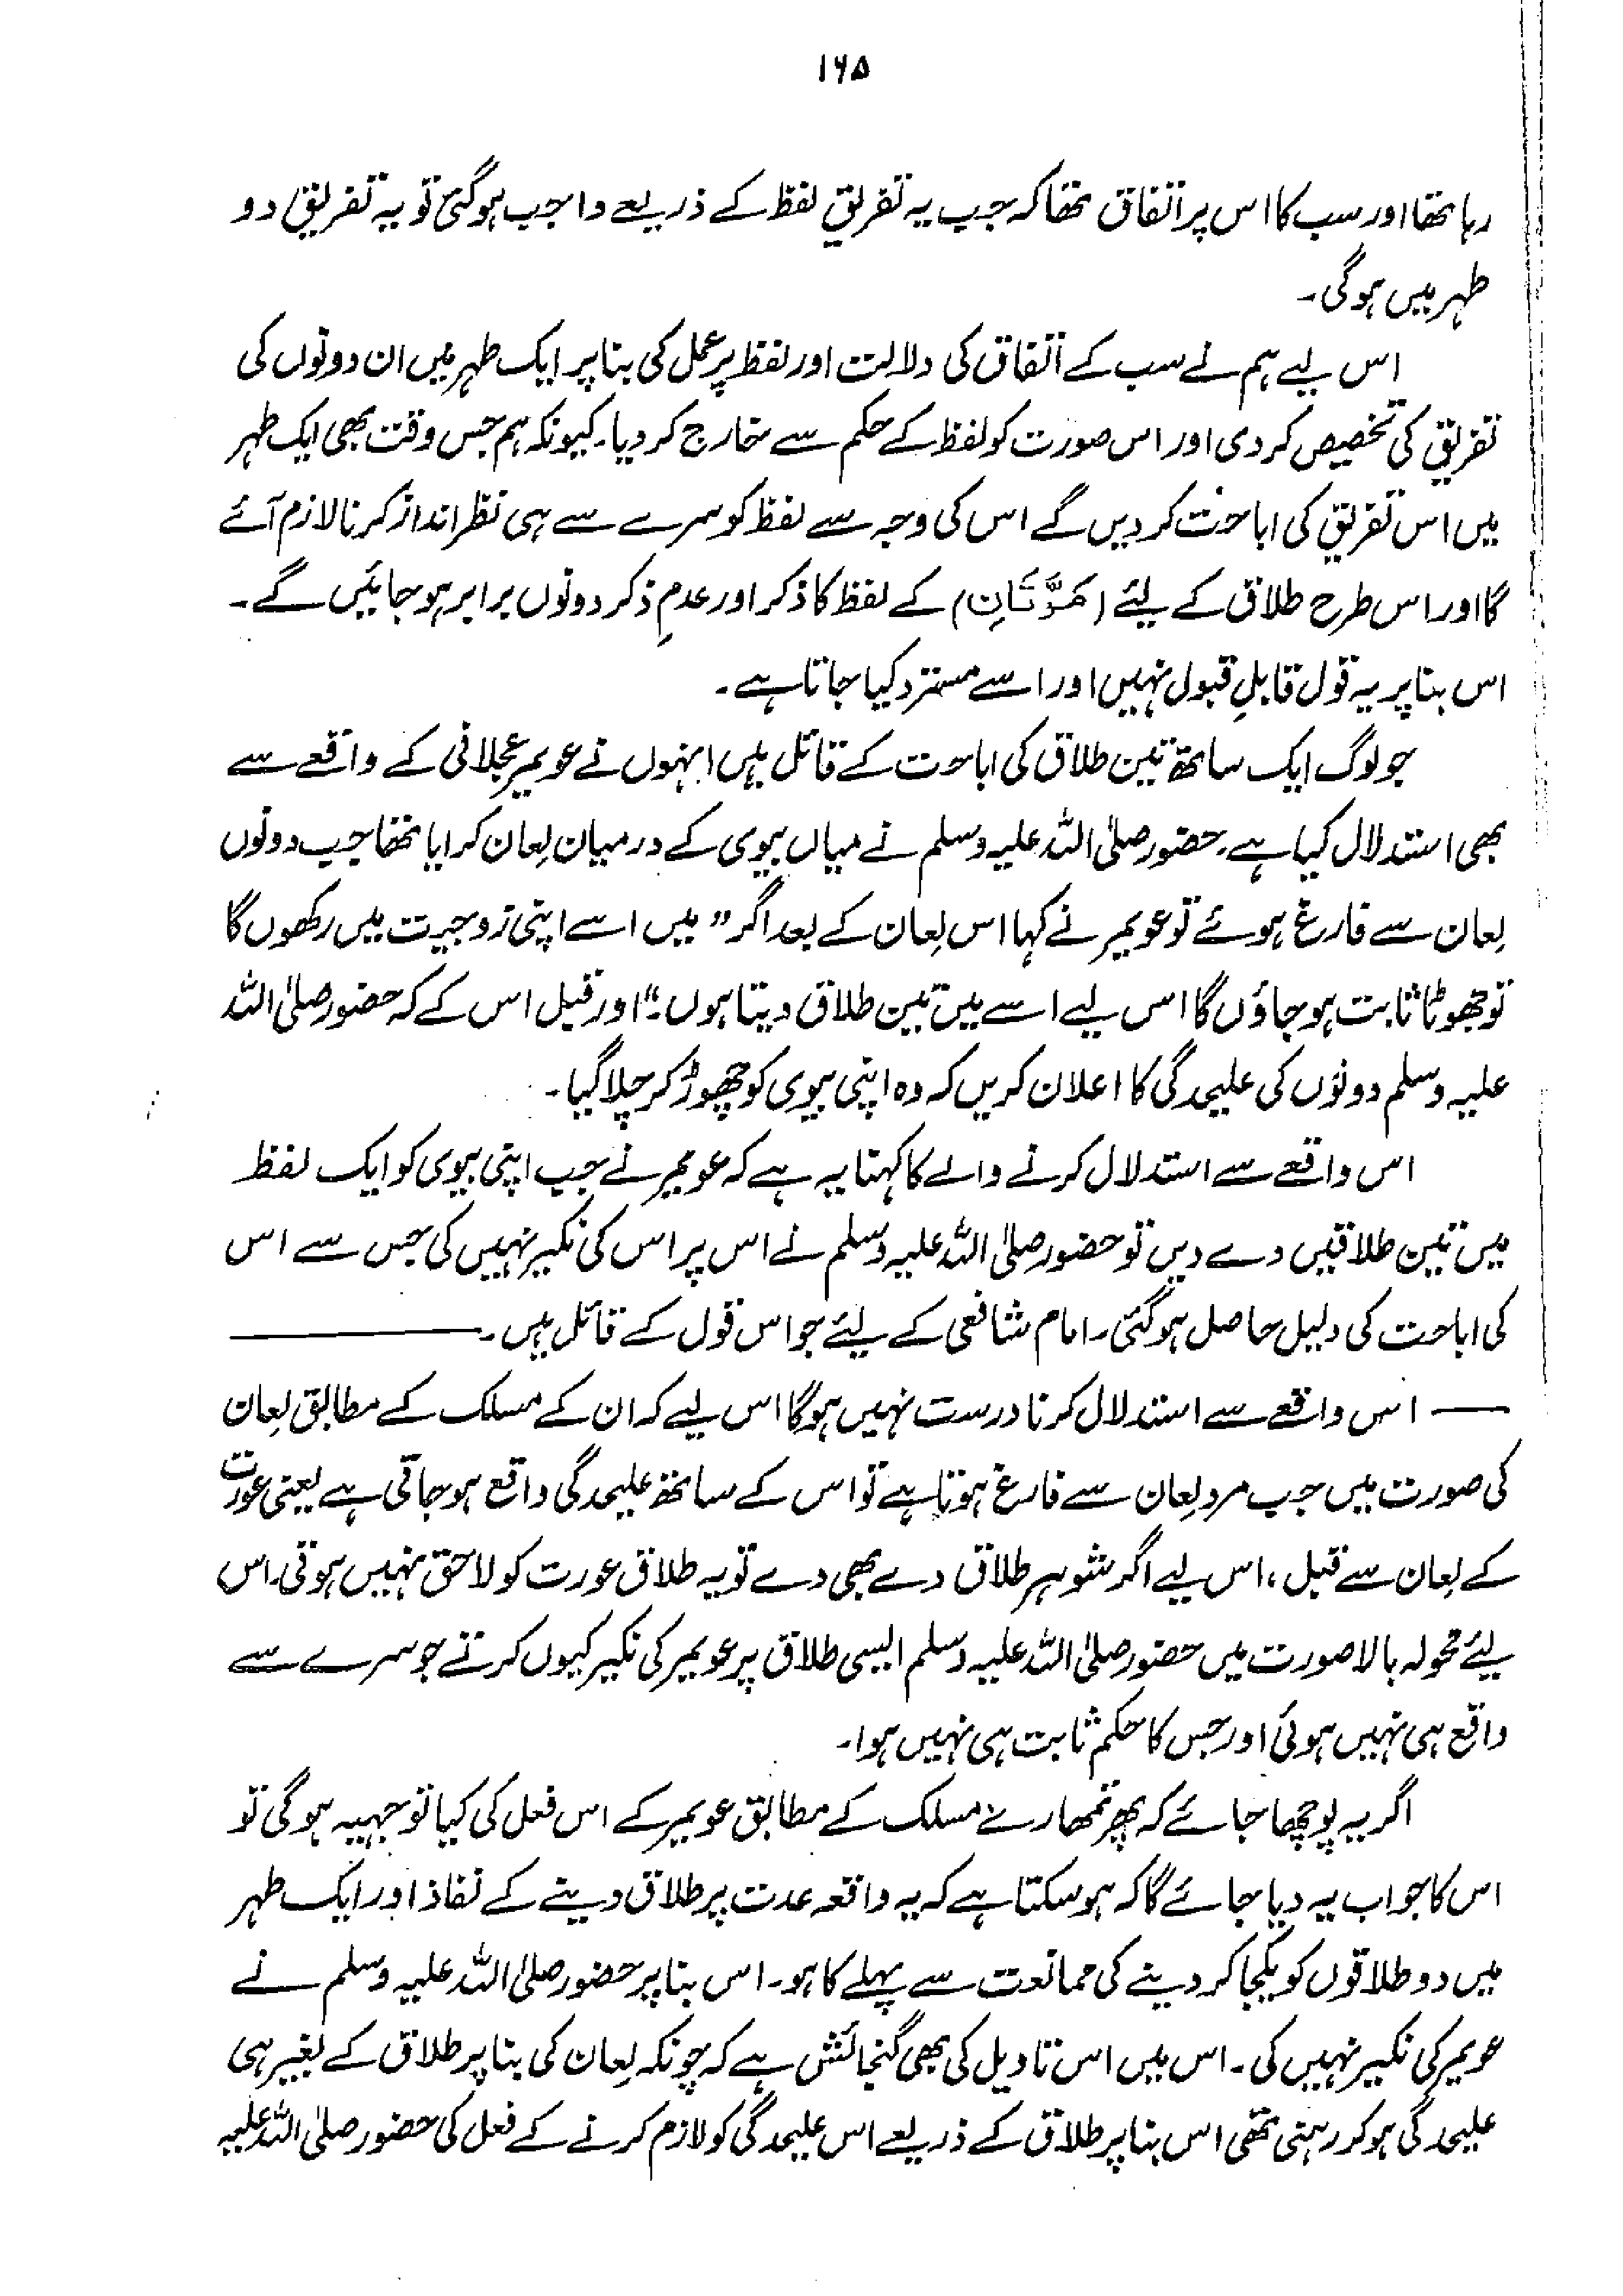 ۱۶۵
رہا تھا اور سب کا اس پر اتفاق تھا کہ جب یہ تفریق لفظ کے ذریعے واجب ہو گئی تو یہ تفریق دو
طہر میں ہو گی۔
اس لیے ہم نے سب کے اتفاق کی دلالت اور لفظ پر عمل کی بنا پر ایک طہر میں ان دونوں کی
تفریق کی تخصیص کر دی اور اس صورت کو لفظ کے حکم سے خارج کر دیا۔ کیونکہ ہم جس وقت بھی ایک طہر
میں اس تفریق کی اباحت کر دیں گے اس کی وجہ سے لفظ کو سرے سے ہی نظر انداز کرنا لازم آئے
گا اور اس طرح طلاق کے لیئے (مَرَّتَانِ) کے لفظ کا ذکر اور عدمِ ذکر دونوں برابر ہو جائیں گے۔
اس بنا پر یہ قول قابلِ قبول نہیں اور اسے مسترد کیا جاتا ہے۔
جو لوگ ایک ساتھ تین طلاق کی اباحت کے قائل ہیں انہوں نے عویمر عجلانی کے واقعے سے
بھی استدلال کیا ہے۔ حضور صلی اللہ علیہ وسلم نے میاں بیوی کے درمیان لِعان کرایا تھا جب دونوں
لِعان سے فارغ ہوئے تو عویمر نے کہا اس لِعان کے بعد اگر "میں اسے اپنی زوجیت میں رکھوں گا
تو جھوٹا ثابت ہو جاؤں گا اس لیے اسے میں تین طلاق دیتا ہوں۔" اور قبل اس کے کہ حضور صلی اللہ
علیہ وسلم دونوں کی علیحدگی کا اعلان کریں کہ وہ اپنی بیوی کو چھوڑ کر چلا گیا۔
اس واقعے سے استدلال کرنے والے کا کہنا یہ ہے کہ عویمر نے جب اپنی بیوی کو ایک لفظ
میں تین طلاقیں دے دیں تو حضور صلی اللہ علیہ وسلم نے اس پر اس کی نکیر نہیں کی جس سے اس
کی اباحت کی دلیل حاصل ہو گئی۔ امام شافعی کے لیئے جو اس قول کے قائل ہیں۔ ————
— اس واقعے سے استدلال کرنا درست نہیں ہو گا اس لیے کہ ان کے مسلک کے مطابق لِعان
کی صورت میں جب مرد لِعان سے فارغ ہوتا ہے تو اس کے ساتھ علیحدگی واقع ہو جاتی ہے یعنی عورت
کے لِعان سے قبل، اس لیے اگر شوہر طلاق دے بھی دے تو یہ طلاق عورت کو لاحق نہیں ہوتی۔ اس
لیئے محولہ بالا صورت میں حضور صلی اللہ علیہ وسلم ایسی طلاق پر عویمر کی نکیر کیوں کرتے جو سرے سے
واقع ہی نہیں ہوئی اور جس کا حکم ثابت ہی نہیں ہوا۔
اگر یہ پوچھا جائے کہ پھر تمھارے مسلک کے مطابق عویمر کے اس فعل کی کیا توجہیہ ہو گی تو
اس کا جواب یہ دیا جائے گا کہ ہو سکتا ہے کہ یہ واقعہ عدت پر طلاق دینے کے نفاذ اور ایک طہر
میں دو طلاقوں کو یکجا کر دینے کی ممانعت سے پہلے کا ہو۔ اس بنا پر حضور صلی اللہ علیہ وسلم نے
عویمر کی نکیر نہیں کی۔ اس میں اس تاویل کی بھی گنجائش ہے کہ چونکہ لِعان کی بنا پر طلاق کے بغیر ہی
علیحدگی ہو کر رہنی تھی اس بنا پر طلاق کے ذریعے اس علیحدگی کو لازم کرنے کے فعل کی حضور صلی اللہ علیہ